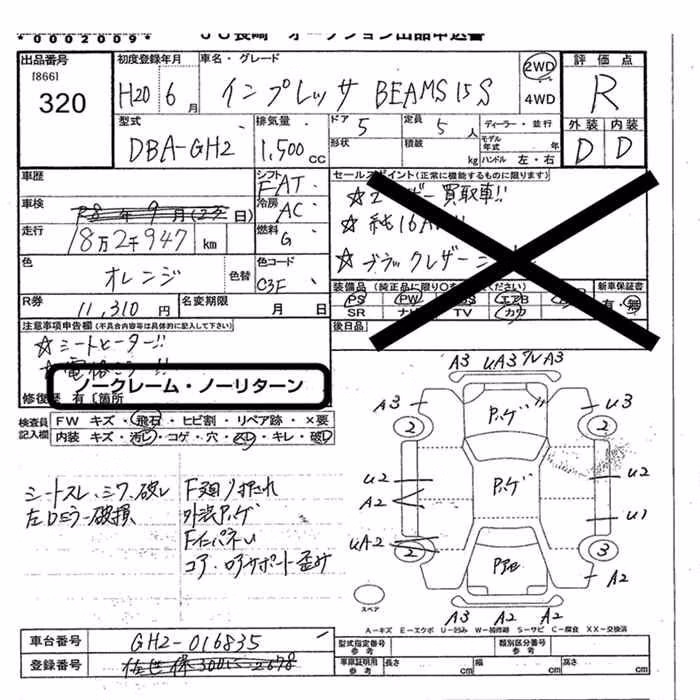 *0002009*
JU長崎 オークション出品申込書
出品番号
[866]
320
初度登録年月
H20 6月
車名・グレード
インプレッサ BEAMS 15S
2WD
4WD
評価点
R
外装 内装
D D
型式
DBA-GH2
排気量
1,500 CC
ドア 5
形状
定員 5人
積載 kg
ディーラー・並行
モデル年式 年
ハンドル 左・右
車歴
シフト
FAT
セールスポイント (正常に機能するものに限ります)
☆2 買取車!!
☆純16A
☆ブラックレザー
車検
R8年9月( 日)
冷房
AC
走行
18万2千947 km
燃料
G
色
オレンジ
色替
色コード
C3F
装備品 (純正品に限り○ ください)
PS PW エアB
SR ナビ TV カワ
新車保証書
有・無
R券
11,310円
名変期限
月 日
後日品
注意事項申告欄 (不具合内容等は具体的に記入して下さい)
☆シートヒーター!!
☆電格 !!
ノークレーム・ノーリターン
修復歴 有 〔箇所
検査員
記入欄
FW キズ・飛石・ヒビ割・リペア跡・×要
内装 キズ・汚レ・コゲ・穴・スレ・キレ・破レ
シートスレ、シワ、破レ
左Dミラー破損
F廻り押され
外装ハゲ
Fインパネい
コア・ロアサポート歪み
A3 UA3 A3
A3 ハゲ U3
2 2
U2 ハゲ U2
A2 U1
UA2
2 3
A2
A3 A2 A2
スペア
A-キズ E-エクボ U-凹み W-補修跡 S-サビ C-腐食 XX-交換済
車台番号
GH2-016835
登録番号
佐世保300 2878
型式指定番号
参考
類別区分番号
参考
車庫証明用
参考
長さ cm
幅 cm
高さ cm